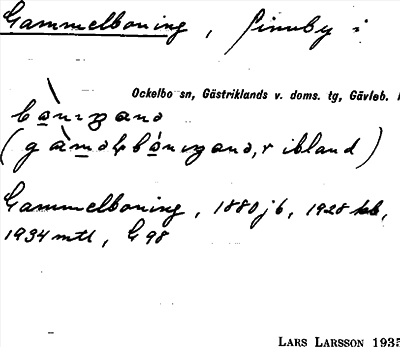 Gammelboning, finnby i
Ockelbo sn, Gästriklands v. doms. tg, Gävleb.
ibland)
Gammelboning, 1880 jb, 1928 kb,
1934 mtl, G 98
LARS LARSSON 1935